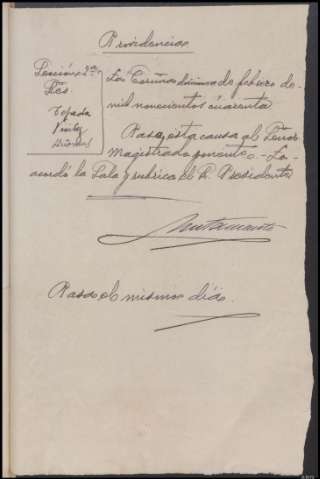 Providencia
Sección 2ª
Sres.
Tejada
La Coruña de febrero de
mil novecientos cuarenta
Pase esta causa al Señor
Magistrado ponente.- Lo
acordó la Sala y rubrica el Sr. Presidente
Pasa el mismo día.